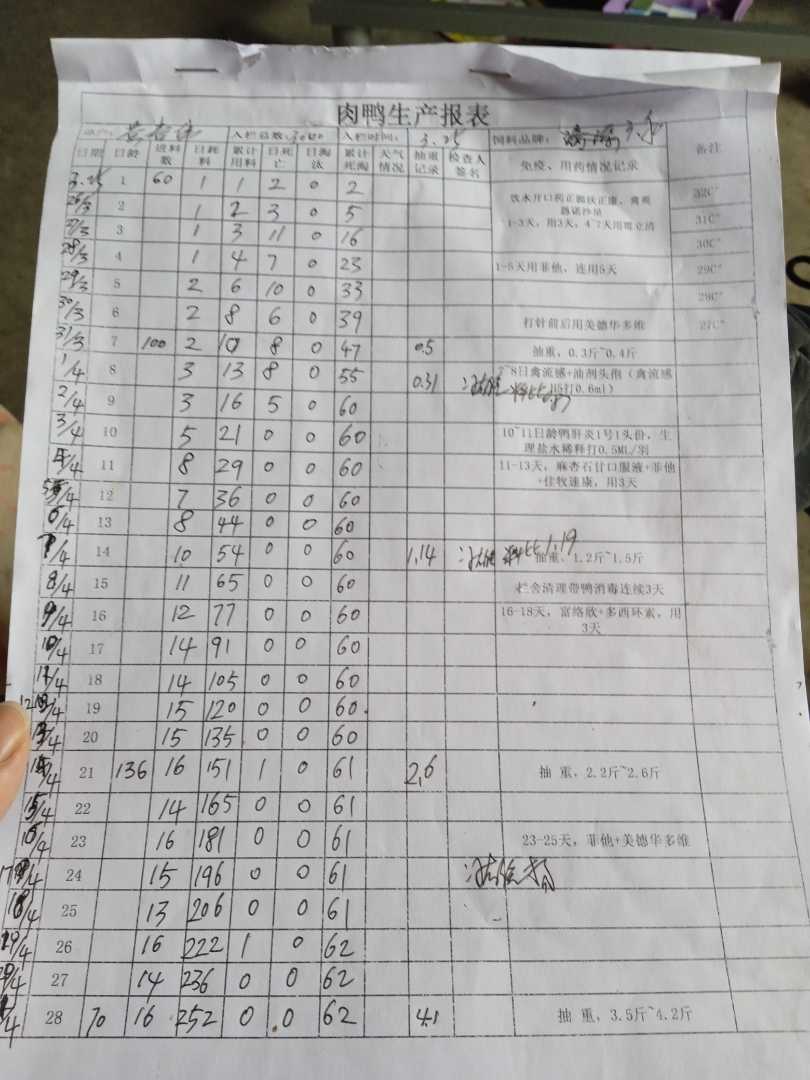 肉鸭生产报表
入栏总数: 3000 入栏时间: 3.25 饲料品牌: 备注
日期 日龄 进料数 日耗料 累计用料 日死亡 日淘汰 累计死淘 天气情况 抽重记录 检查人签名 免疫、用药情况记录
3.25 1 60 1 1 2 0 2 32C°
26/3 2 1 2 3 0 5 1-3天，用3天，4~7天用 31C°
27/3 3 1 3 11 0 16 30C°
28/3 4 1 4 7 0 23 1-5天用菲他，连用5天 29C°
29/3 5 2 6 10 0 33 28C°
30/3 6 2 8 6 0 39 打针前后用美德华多维 27C°
31/3 7 100 2 10 8 0 47 0.5 抽重，0.3斤~0.4斤
1/4 8 3 13 8 0 55 0.31 7~8日禽流感+油剂头孢（禽流感 打0.6ml）
2/4 9 3 16 5 0 60
3/4 10 5 21 0 0 60 10~11日龄鸭肝炎1号1头份，生理盐水稀释打0.5ML/羽
4/4 11 8 29 0 0 60 11-13天，麻杏石甘口服液+菲他+佳牧速康，用3天
5/4 12 7 36 0 0 60
6/4 13 8 44 0 0 60
7/4 14 10 54 0 0 60 1.14 料比1.19 抽重，1.2斤~1.5斤
8/4 15 11 65 0 0 60 栏舍清理带鸭消毒连续3天
9/4 16 12 77 0 0 60 16-18天，富络欣+多西环素，用3天
10/4 17 14 91 0 0 60
11/4 18 14 105 0 0 60
12/4 19 15 120 0 0 60
13/4 20 15 135 0 0 60
14/4 21 136 16 151 1 0 61 2.6 抽 重，2.2斤~2.6斤
15/4 22 14 165 0 0 61
16/4 23 16 181 0 0 61 23-25天，菲他+美德华多维
17/4 24 15 196 0 0 61
18/4 25 13 206 0 0 61
19/4 26 16 222 1 0 62
20/4 27 14 236 0 0 62
28 70 16 252 0 0 62 4.1 抽 重，3.5斤~4.2斤